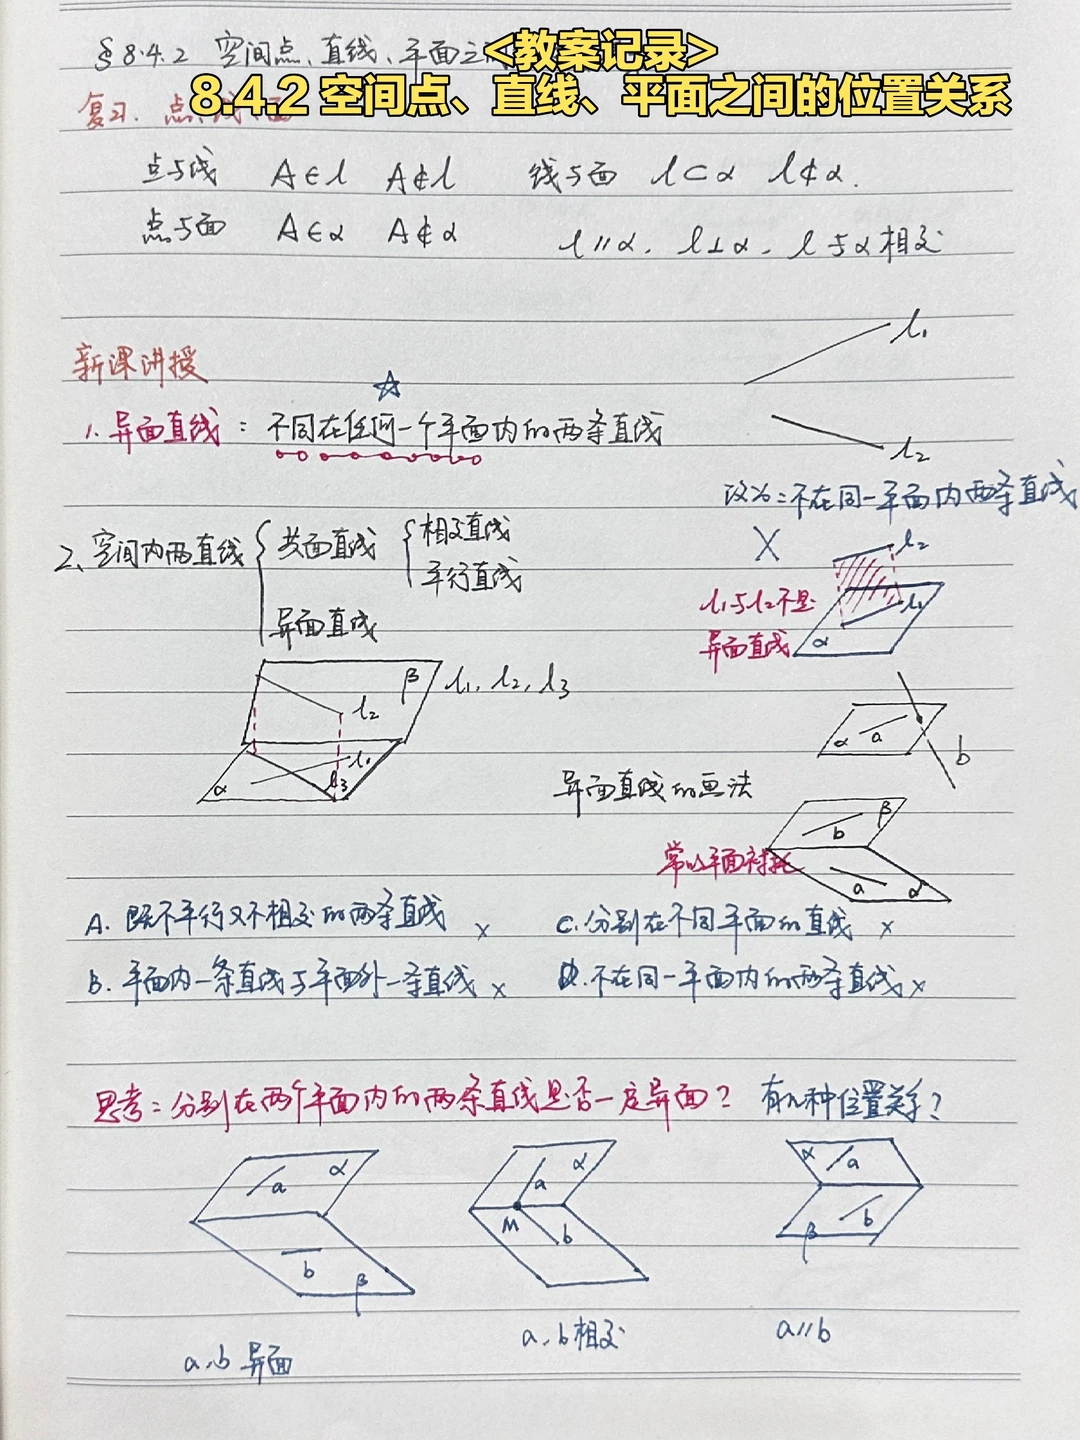 <教案记录>
8.4.2 空间点、直线、平面之间的位置关系
§8.4.2 空间点、直线、平面之
复习、点、线、面
点与线 A∈l A∉l 线与面 l⊂α l⊄α.
点与面 A∈α A∉α l∥α、l⊥α、l与α相交
l₁
新课讲授
☆
1. 异面直线：不同在任何一个平面内的两条直线
l₂
改为：不在同一平面内两条直线
2、空间内两直线 共面直线 相交直线
平行直线
异面直线
X
l₂
l₁
l₁与l₂不是
异面直线
α
β l₁、l₂、l₃
l₂
l₁
α l₃
α a
b
异面直线的画法
b β
常以平面衬托
a α
A. 既不平行又不相交的两条直线 × C. 分别在不同平面的直线 ×
B. 平面内一条直线与平面外一条直线 × D. 不在同一平面内的两条直线 ×
思考：分别在两个平面内的两条直线是否一定异面？有几种位置关系？
a α a α α a
M b b
b β β
a、b 异面 a、b相交 a∥b